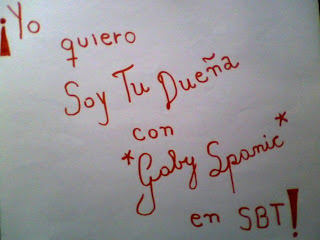 ¡Yo
quiero
Soy Tu Dueña
con
*Gaby Spanic*
en SBT!